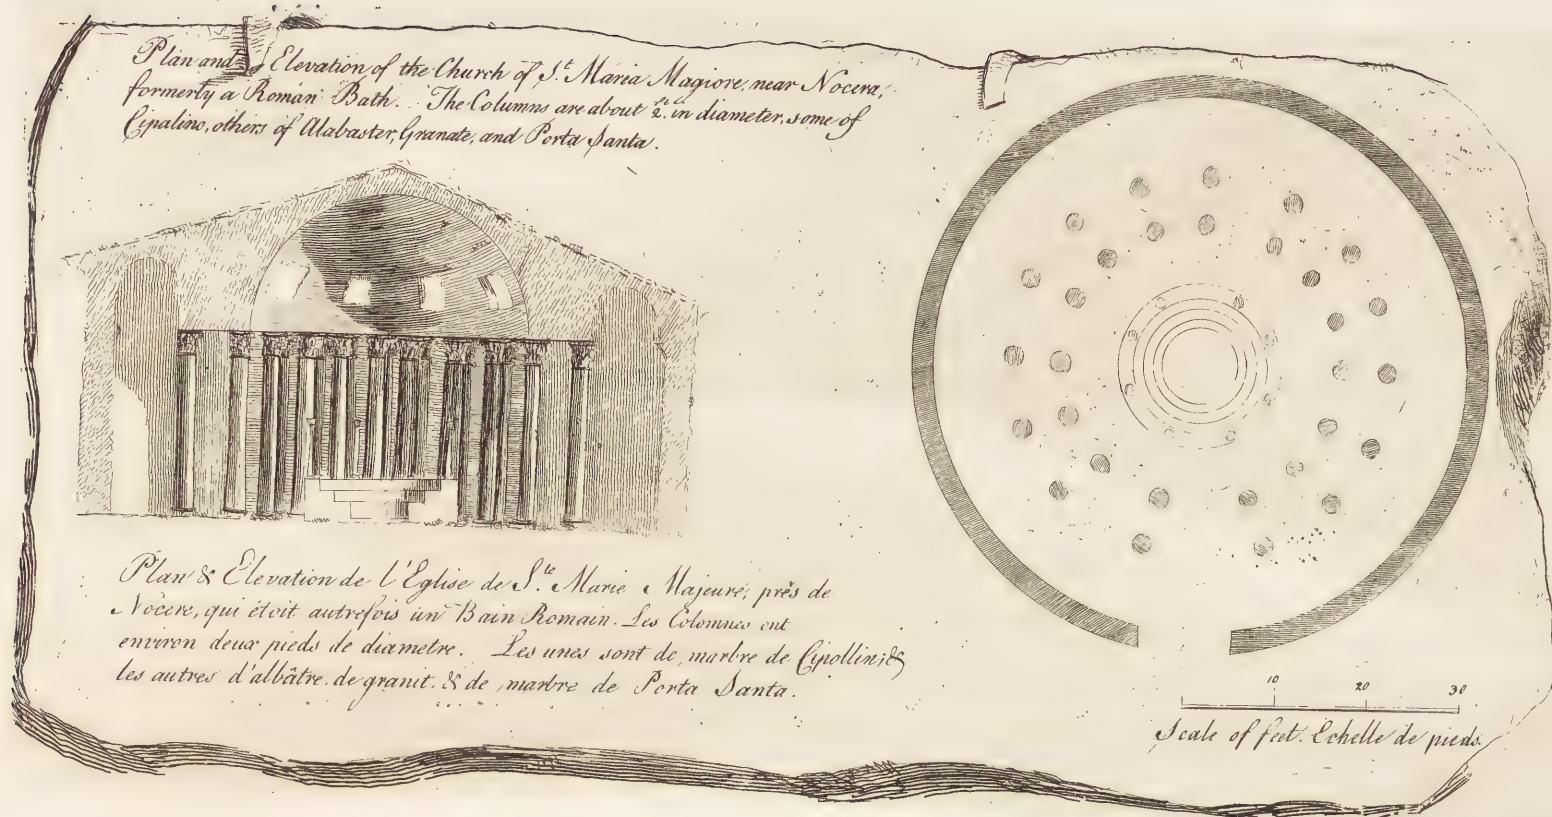 Plan and Elevation of the Church of St. Maria Magiore, near Nocera,
formerly a Roman Bath. The Columns are about 2 ft. in diameter, some of
Cipalino, others of Alabaster, Granate, and Porta Santa.
Plan & Elevation de l'Eglise de Ste. Marie Majeure, près de
Nocere, qui étoit autrefois un Bain Romain. Les Colomnes ont
environ deux pieds de diametre. Les unes sont de marbre de Cipollin; &
les autres d'albâtre. de granit. & de marbre de Porta Santa.
10 20 30
Scale of feet. Echelle de pieds.